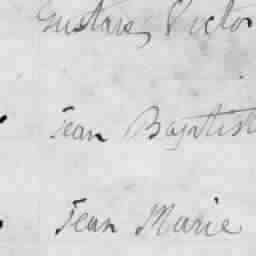 Gustave, Victor
Jean Baptist
Jean Marie